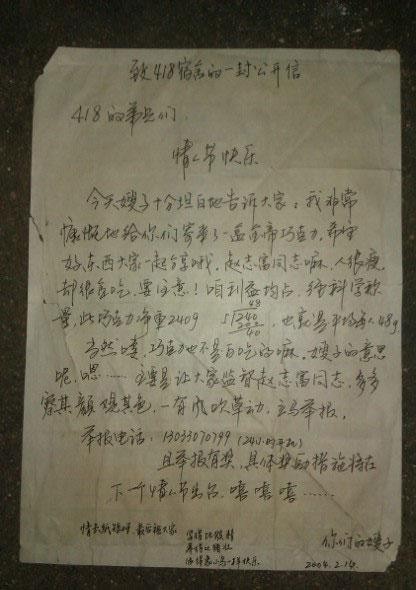 致418宿舍的一封公开信
418的弟兄们:
情人节快乐
今天嫂子十分坦白地告诉大家:我非常
慷慨地给你们寄来了一盒金帝巧克力,希望
好东西大家一起分享哦,赵志富同志嘛,人很瘦,
却很贪吃,要注意!咱利益均占,经科学称
量,此巧克力净重240g
48
5 240
20
40
,也就是平均每人48g
当然喽,巧克力也不是白吃的嘛,嫂子的意思
呢,嗯……主要是让大家监督赵志富同志,多多
察其颜观其色,一有风吹草动,立马举报,
举报电话:13033070799(24小时开机)
且举报有奖,具体奖励措施将在
下个情人节出台,嘻嘻嘻……
情长纸短 最后祝大家
你们的嫂子
2004.2.14